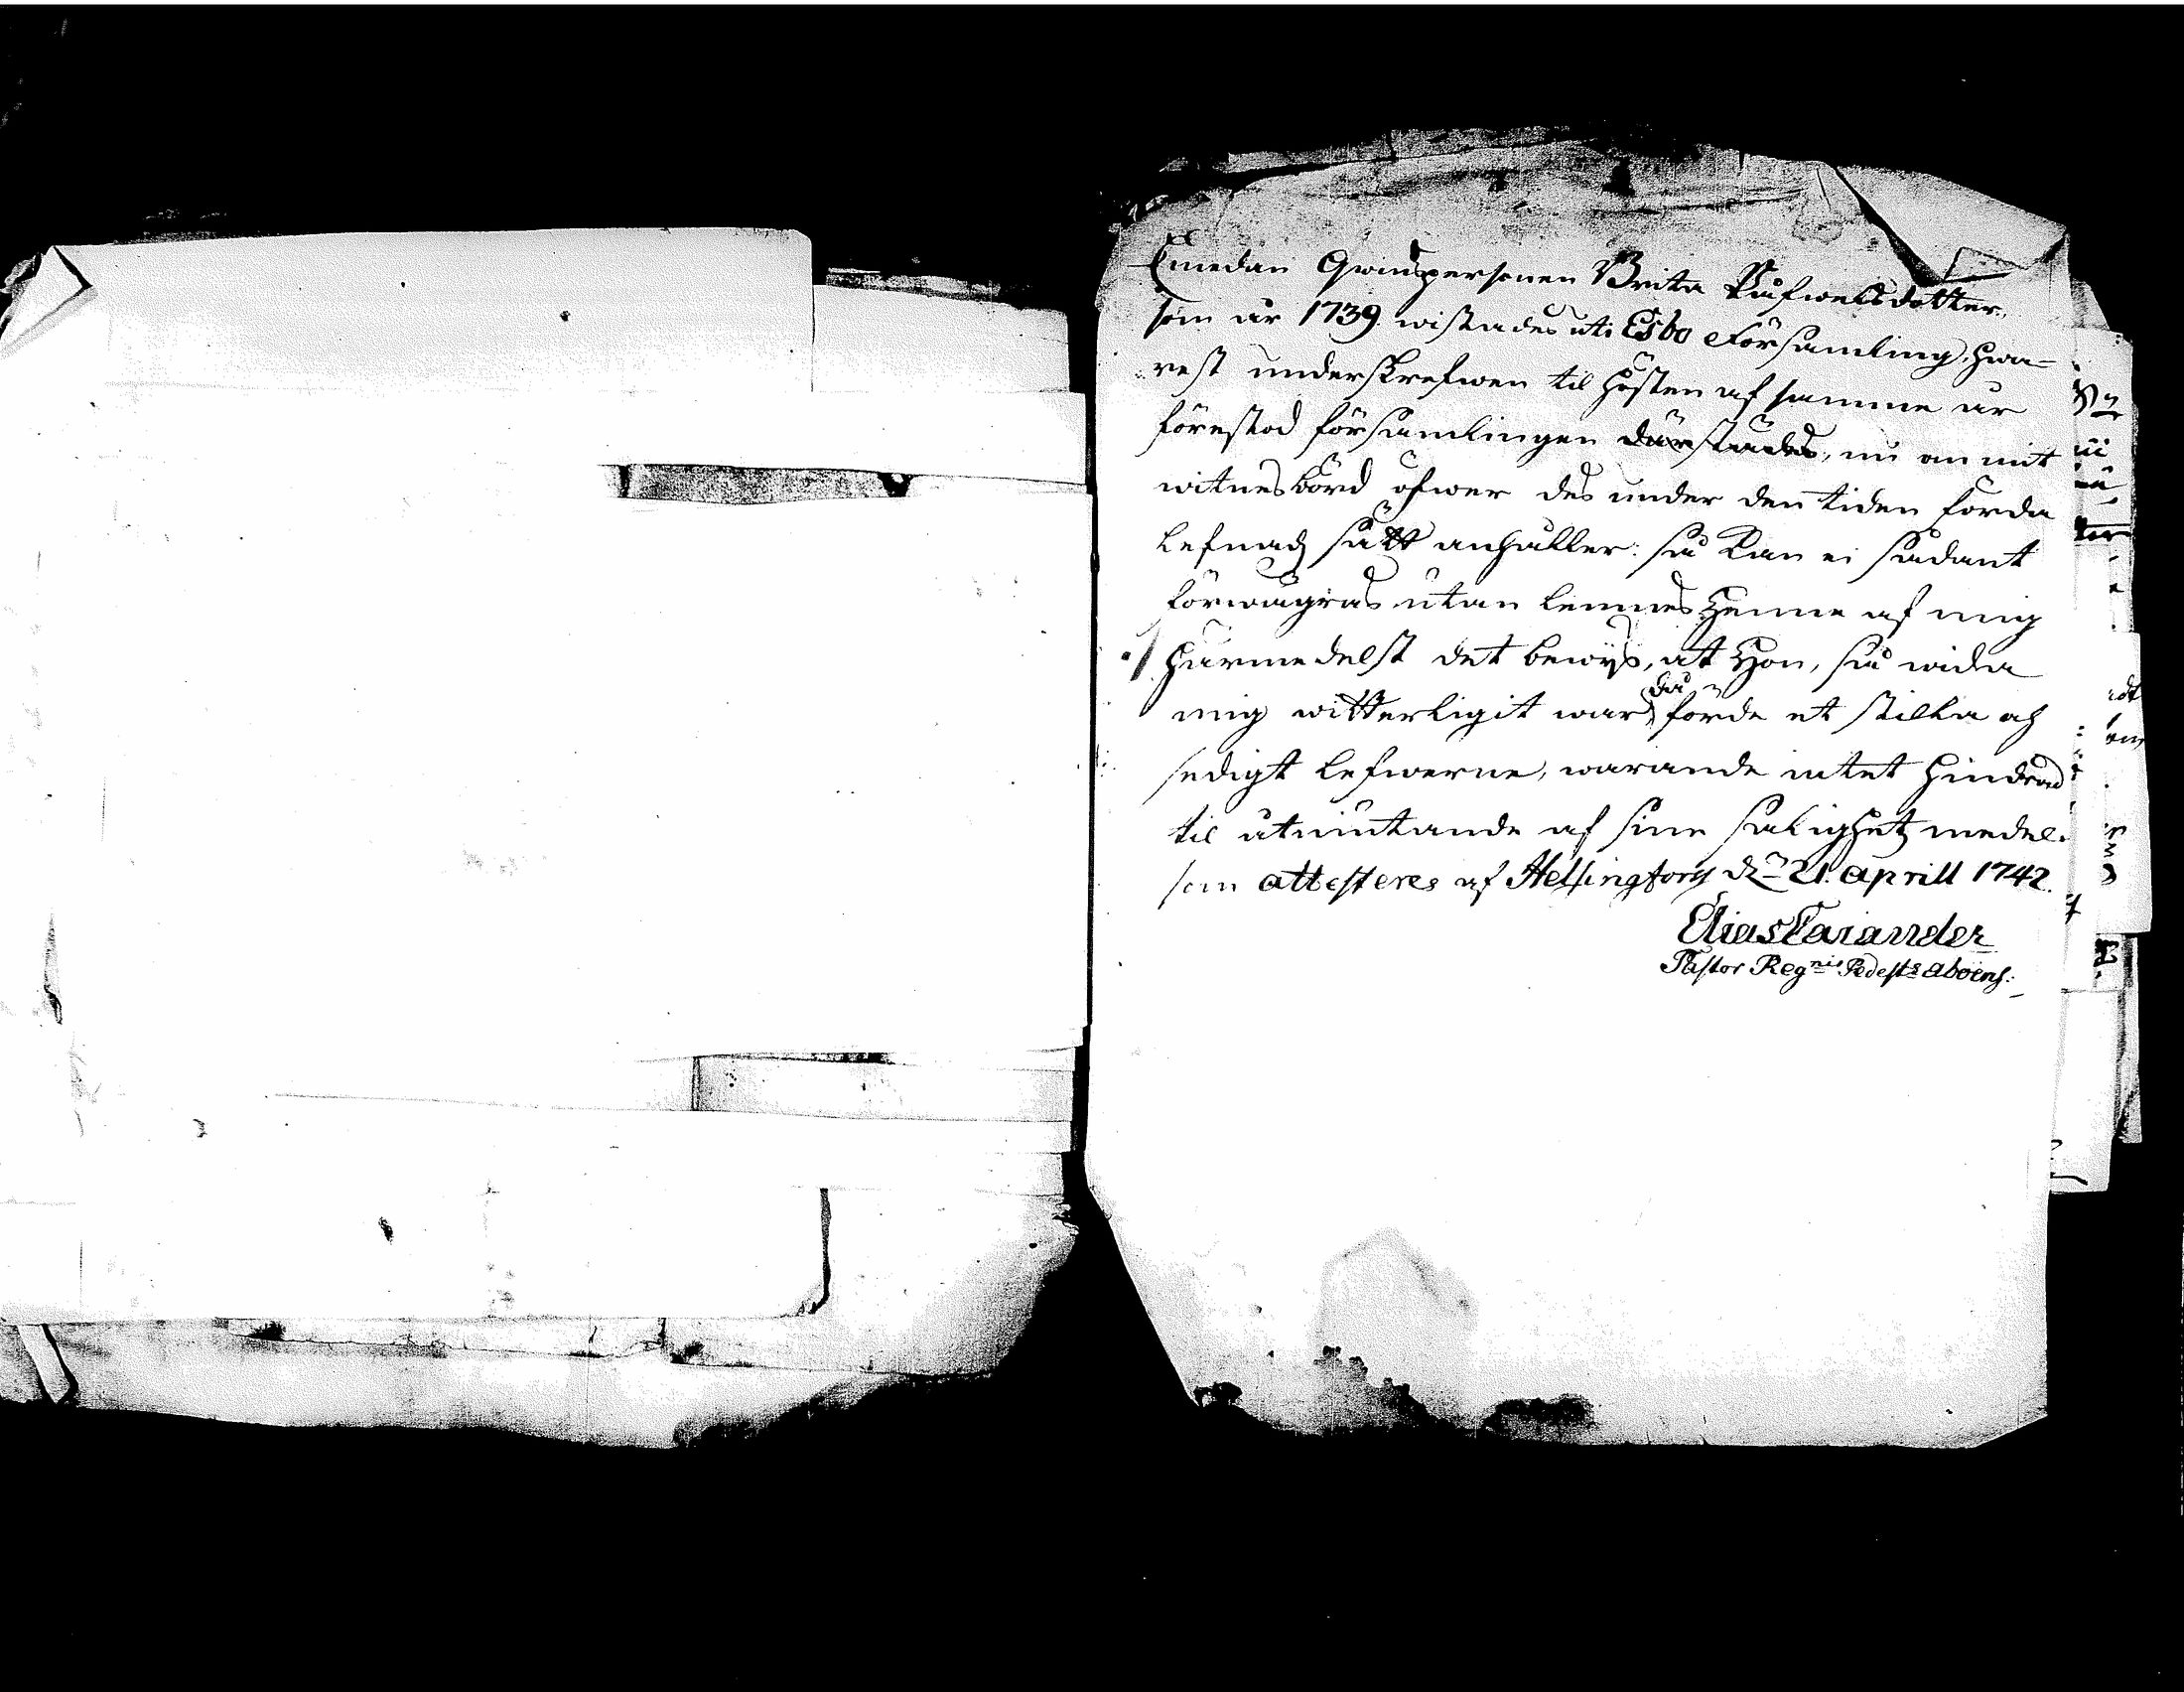 Emedan Qwinspersonen Brita Påfwelsdotter,
som år 1739. wistades uti Esbo Församling, hwa-
rest underskrefwen til hösten af samma år
förestod församlingen därstädes, nu om mit
witnesbörd öfwer des under den tiden förda
lefnadz sätt anhåller: så kan ei sådant
förwägras utan lemnes henne af mig
härmedelst det bewijs, at Hon, så wida
mig witterligit war, då förde et stilla och
sedigt lefwerne, warande intet hindrad
til åtniutande af sine salighetz medel.
som attesteres af Helsingfors dn 21. aprill 1742.
Elias Caiander
Pastor Regnis Pedestr aboens: